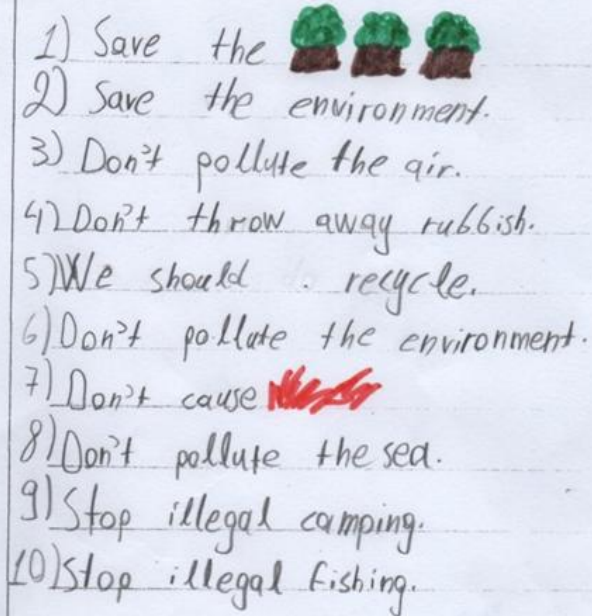 1) Save the
2) Save the environment.
3) Don't pollute the air.
4) Don't throw away rubbish.
5) We should recycle.
6) Don't pollute the environment.
7) Don't cause
8) Don't pollute the sea.
9) Stop illegal camping.
10) Stop illegal fishing.